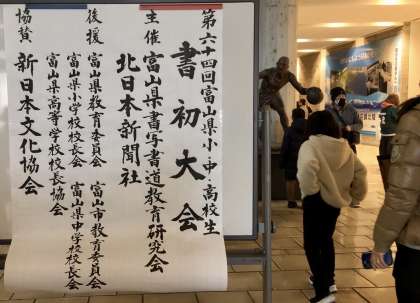 第六十四回富山県小中高校生
書初大会
主催 富山県書写書道教育研究会
北日本新聞社
後援 富山県教育委員会 富山市教育委員会
富山県小学校校長会 富山県中学校校長会
富山県高等学校校長協会
協賛 新日本文化協会